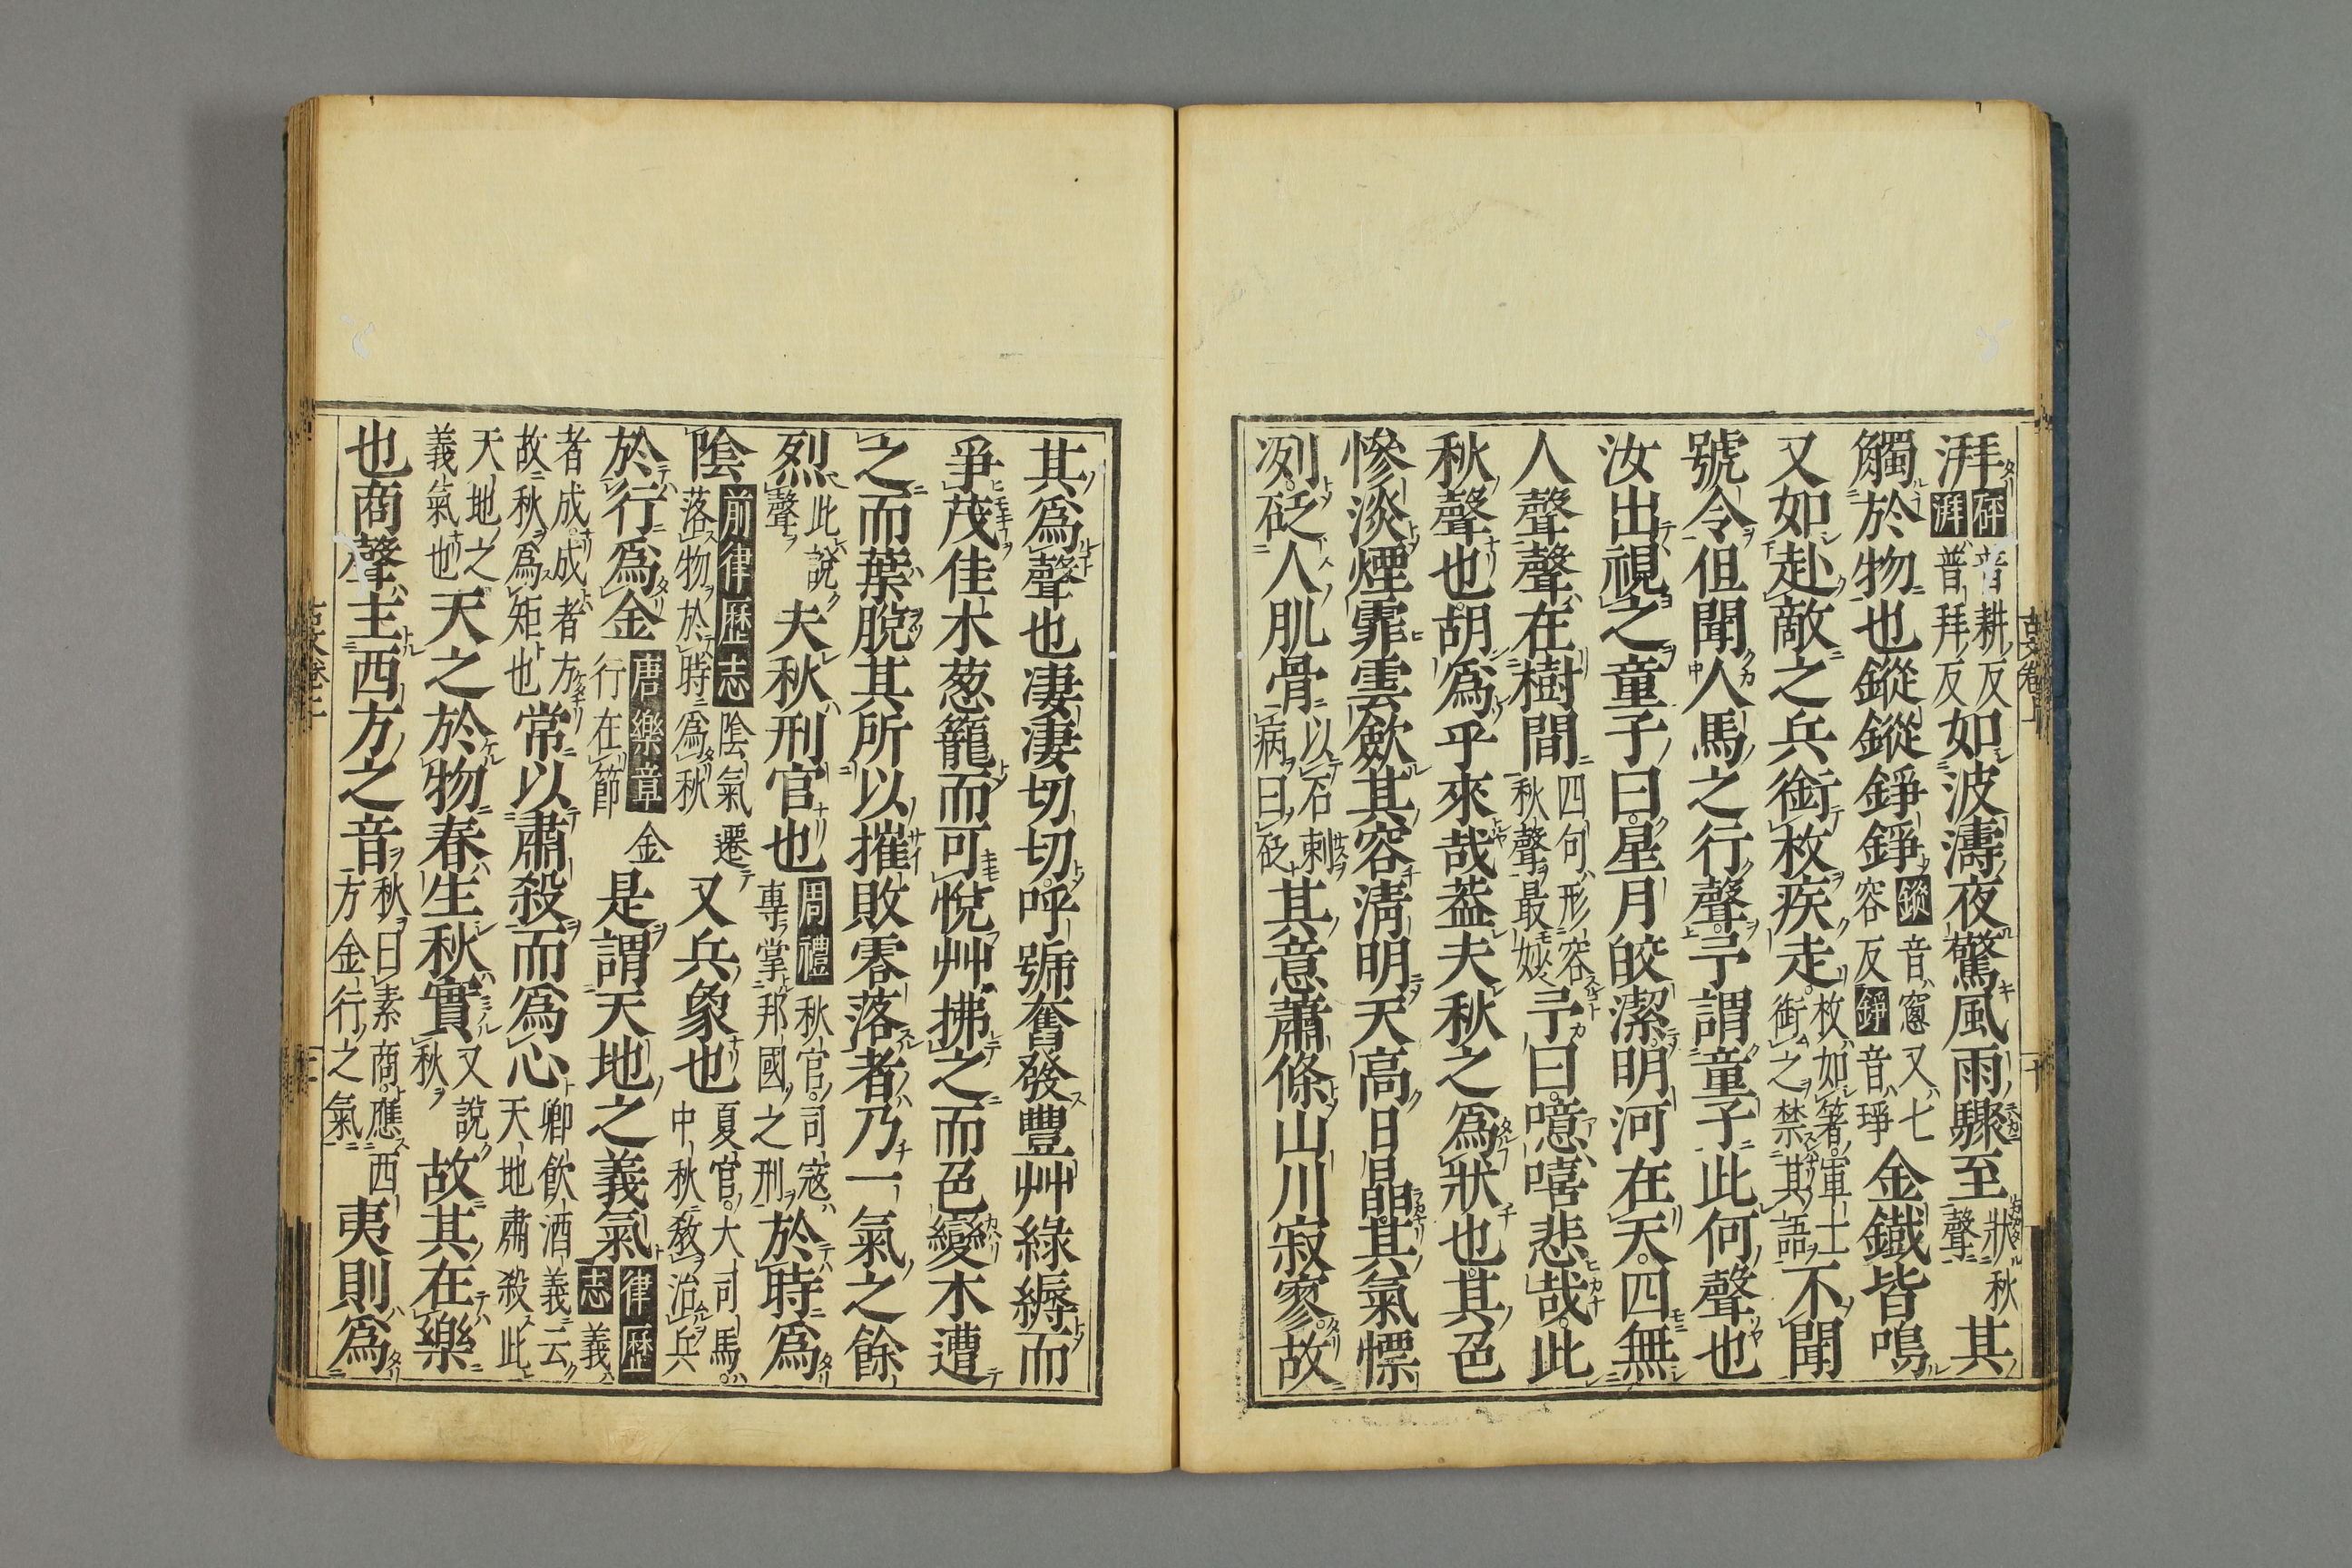 湃砰音耕反湃普拜反如波濤夜驚風雨驟至狀秋聲其
觸於物也鏦鏦錚錚鏦音窻又七容反錚音琤金鐵皆鳴
又如赴敵之兵銜枚疾走枚如箸軍士銜之禁其語不聞
號令但聞人馬之行聲予謂童子此何聲也
汝出視之童子曰星月皎潔明河在天四無
人聲聲在樹間四句形容秋聲最妙予曰噫嘻悲哉此
秋聲也胡爲乎來哉葢夫秋之爲狀也其色
慘淡煙霏雲歛其容清明天高日晶其氣慄
冽砭人肌骨以石刺病曰砭其意蕭條山川寂寥故
其爲聲也凄凄切切呼號奮發豐艸綠縟而
爭茂佳木葱籠而可悅艸拂之而色變木遭
之而葉脫其所以摧敗零落者乃一氣之餘
烈此說聲夫秋刑官也周禮秋官司寇專掌邦國之刑於時爲
陰前律歷志陰氣遷落物於時爲秋又兵象也夏官大司馬中秋教治兵
於行爲金唐樂章金行在節是謂天地之義氣律歷志義
者成成者方故秋爲矩也常以肅殺而爲心卿飲酒義云天地肅殺此
天地之義氣也天之於物春生秋實又說秋故其在樂
也商聲主西方之音秋日素商應西方金行之氣夷則爲
古文卷上
十